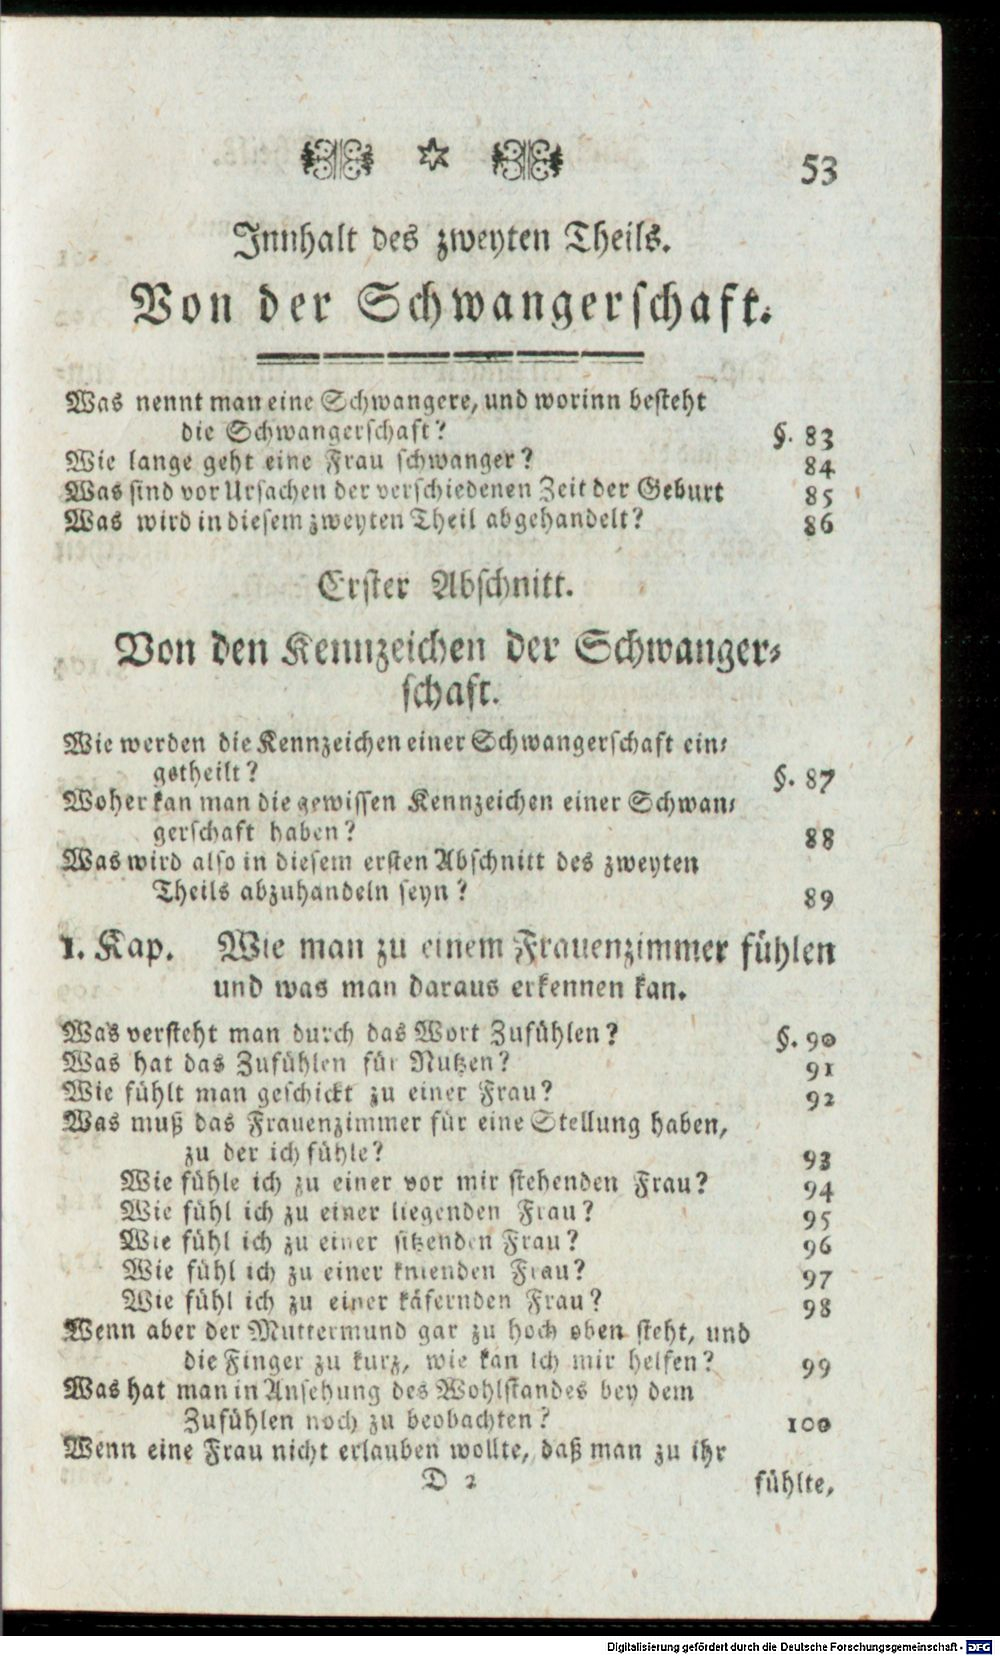 53
Innhalt des zweyten Theils.
Von der Schwangerschaft.
Was nennt man eine Schwangere, und worinn besteht
die Schwangerschaft? §. 83
Wie lange geht eine Frau schwanger? 84
Was sind vor Ursachen der verschiedenen Zeit der Geburt 85
Was wird in diesem zweyten Theil abgehandelt? 86
Erster Abschnitt.
Von den Kennzeichen der Schwanger-
schaft.
Wie werden die Kennzeichen einer Schwangerschaft ein-
getheilt? §. 87
Woher kan man die gewissen Kennzeichen einer Schwan-
gerschaft haben? 88
Was wird also in diesem ersten Abschnitt des zweyten
Theils abzuhandeln seyn? 89
1. Kap. Wie man zu einem Frauenzimmer fühlen
und was man daraus erkennen kan.
Was versteht man durch das Wort Zufühlen? §. 90
Was hat das Zufühlen für Nutzen? 91
Wie fühlt man geschickt zu einer Frau? 92
Was muß das Frauenzimmer für eine Stellung haben,
zu der ich fühle? 93
Wie fühle ich zu einer vor mir stehenden Frau? 94
Wie fühl ich zu einer liegenden Frau? 95
Wie fühl ich zu einer sitzenden Frau? 96
Wie fühl ich zu einer knienden Frau? 97
Wie fühl ich zu einer käfernden Frau? 98
Wenn aber der Muttermund gar zu hoch oben steht, und
die Finger zu kurz, wie kan ich mir helfen? 99
Was hat man in Ansehung des Wohlstandes bey dem
Zufühlen noch zu beobachten? 100
Wenn eine Frau nicht erlauben wollte, daß man zu ihr
D 2 fühlte,
Digitalisierung gefördert durch die Deutsche Forschungsgemeinschaft - DFG